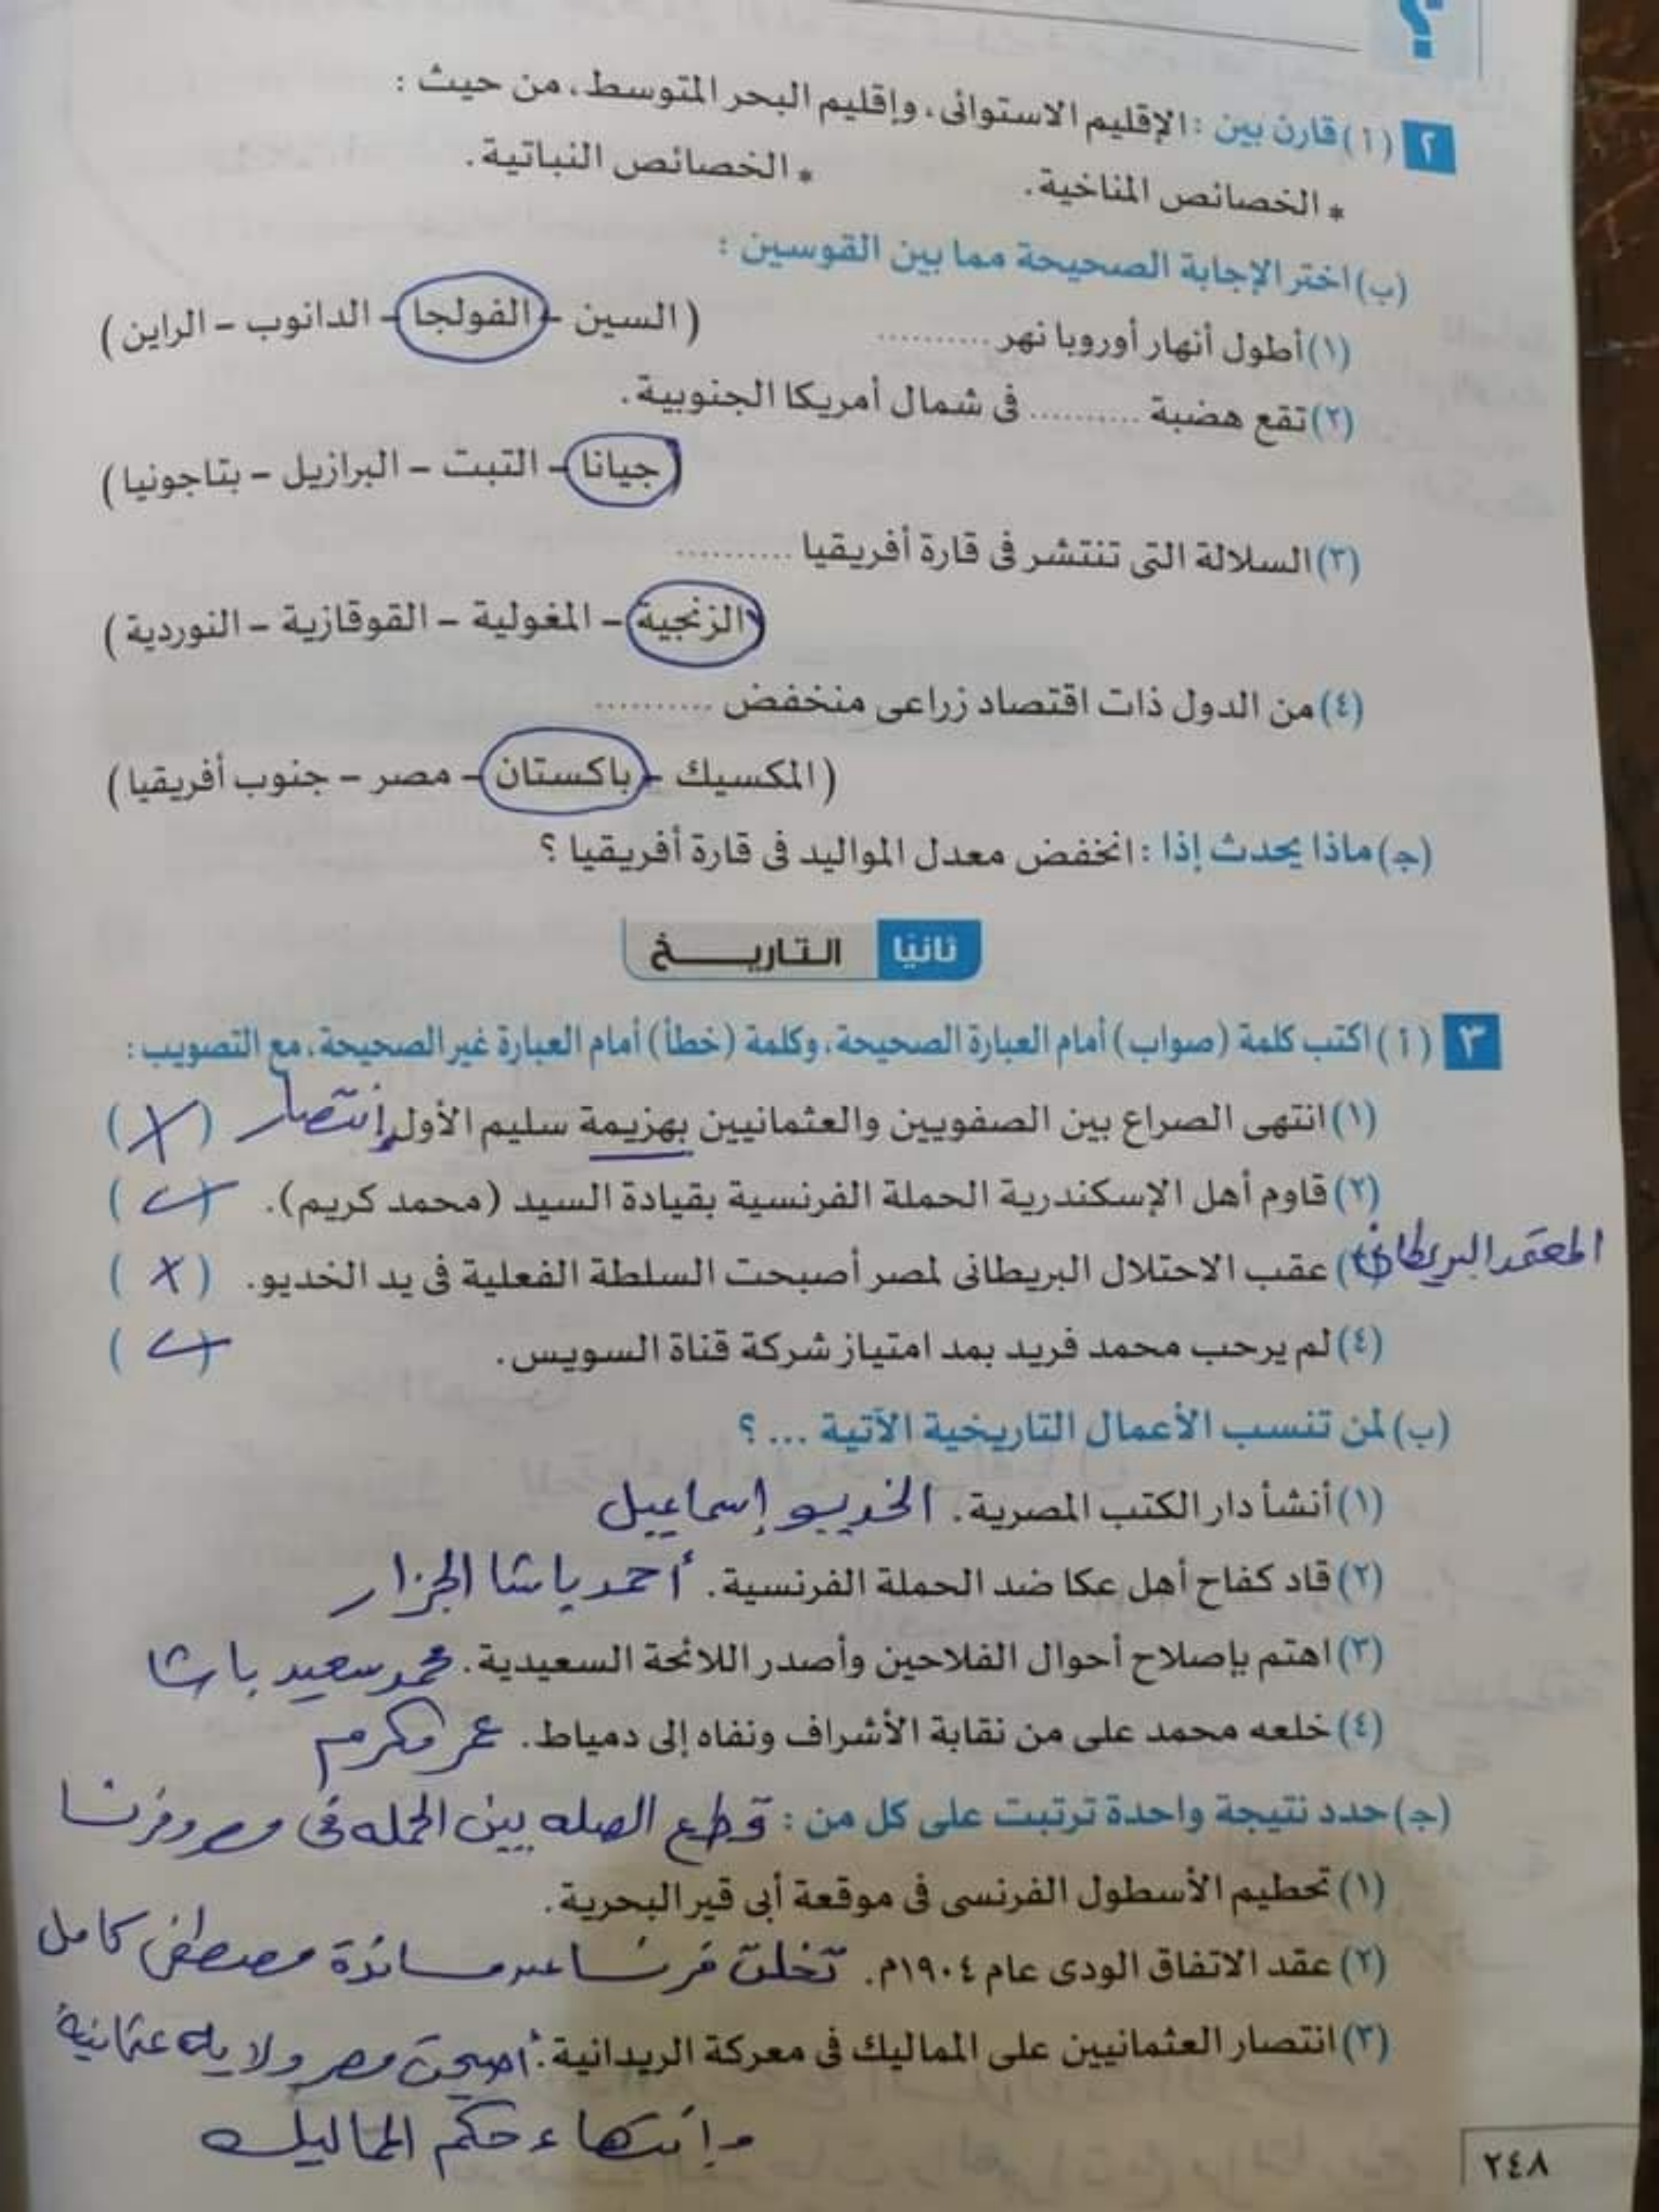 ؟
٢ (أ) قارن بين : الإقليم الاستوائى، وإقليم البحر المتوسط، من حيث :
* الخصائص المناخية. * الخصائص النباتية.
(ب) اختر الإجابة الصحيحة مما بين القوسين :
(١) أطول أنهار أوروبا نهر .......... (السين - الفولجا - الدانوب - الراين)
(٢) تقع هضبة .......... فى شمال أمريكا الجنوبية.
(جيانا - التبت - البرازيل - بتاجونيا)
(٣) السلالة التى تنتشر فى قارة أفريقيا ..........
(الزنجية - المغولية - القوقازية - النوردية)
(٤) من الدول ذات اقتصاد زراعى منخفض ..........
(المكسيك - باكستان - مصر - جنوب أفريقيا)
(ج) ماذا يحدث إذا : انخفض معدل المواليد فى قارة أفريقيا ؟
ثانيًا التاريـــخ
٣ (أ) اكتب كلمة (صواب) أمام العبارة الصحيحة، وكلمة (خطأ) أمام العبارة غير الصحيحة، مع التصويب :
(١) انتهى الصراع بين الصفويين والعثمانيين بهزيمة سليم الأول. إنتصار (X)
(٢) قاوم أهل الإسكندرية الحملة الفرنسية بقيادة السيد (محمد كريم). (✓)
المعتمد البريطانى
(٣) عقب الاحتلال البريطانى لمصر أصبحت السلطة الفعلية فى يد الخديو. (X)
(٤) لم يرحب محمد فريد بمد امتياز شركة قناة السويس. (✓)
(ب) لمن تنسب الأعمال التاريخية الآتية ... ؟
(١) أنشأ دار الكتب المصرية. الخديو إسماعيل
(٢) قاد كفاح أهل عكا ضد الحملة الفرنسية. أحمد باشا الجزار
(٣) اهتم بإصلاح أحوال الفلاحين وأصدر اللائحة السعيدية. محمد سعيد باشا
(٤) خلعه محمد على من نقابة الأشراف ونفاه إلى دمياط. عمر مكرم
(ج) حدد نتيجة واحدة ترتبت على كل من : قطع الصله بين الحمله فى مصر وفرنسا
(١) تحطيم الأسطول الفرنسى فى موقعة أبى قير البحرية.
(٢) عقد الاتفاق الودى عام ١٩٠٤م. تخلت فرنسا عن مساندة مصطفى كامل
(٣) انتصار العثمانيين على المماليك فى معركة الريدانية. أصبحت مصر ولايه عثمانية
وإنتهاء حكم المماليك
٢٤٨